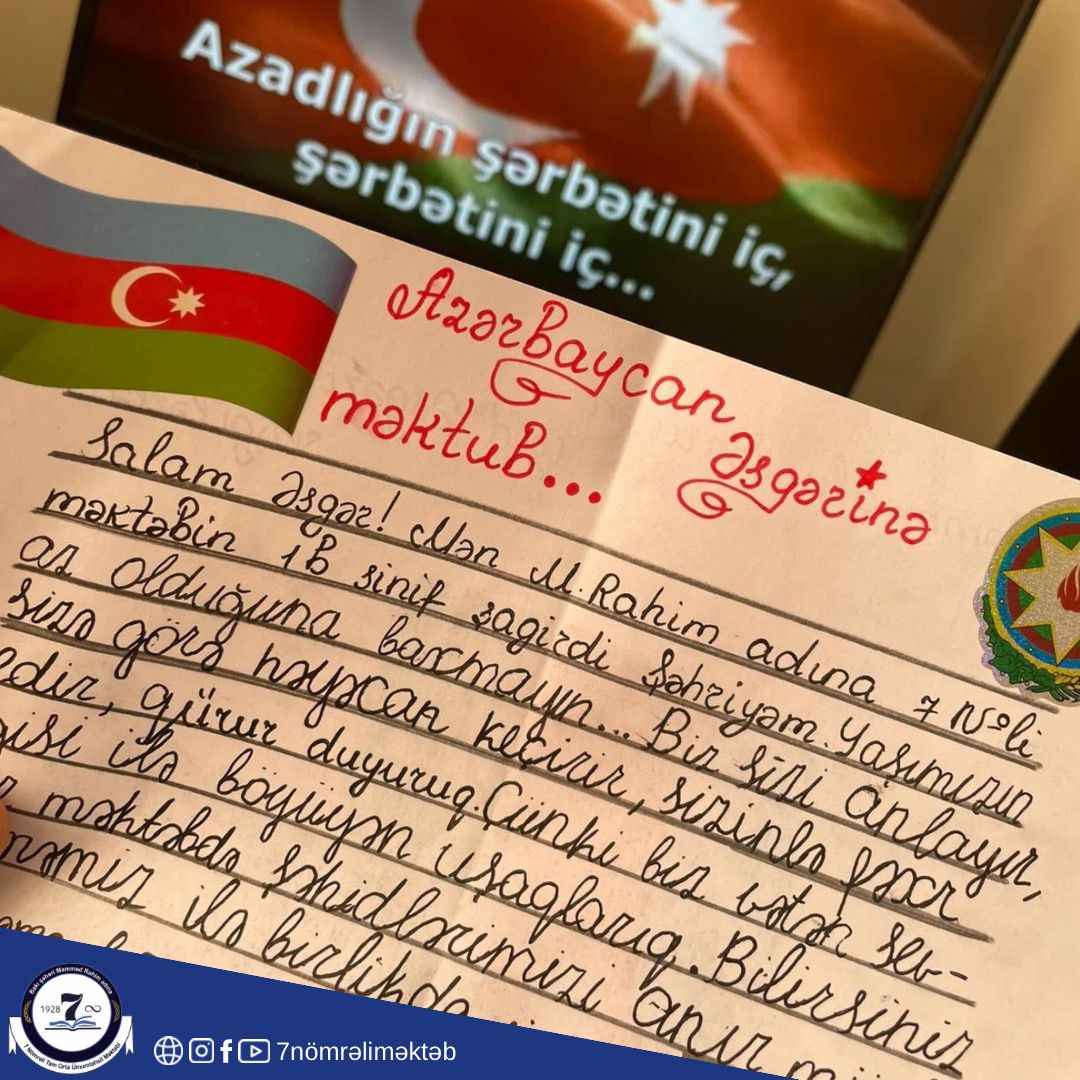 Azadlığın şərbətini iç,
şərbətini iç...
Azərbaycan Əsgərinə
məktub...
Salam Əsgər! Mən M.Rahim adına 7 №li
məktəbin 1B sinif şagirdi Şəhriyəm. Yaşımızın
az olduğuna baxmayın... Biz sizi anlayır,
sizə görə həyəcan keçirir, sizinlə fəxr
edir, qürur duyuruq. Çünki biz vətən sev-
gisi ilə böyüyən uşaqlarıq. Bilirsiniz
məktəbdə şəhidlərimizi anır
ilə birlikdə
Bakı şəhəri Məmməd Rahim adına
1928
7
7 Nömrəli Tam Orta Ümumtəhsil Məktəbi
7nömrəliməktəb